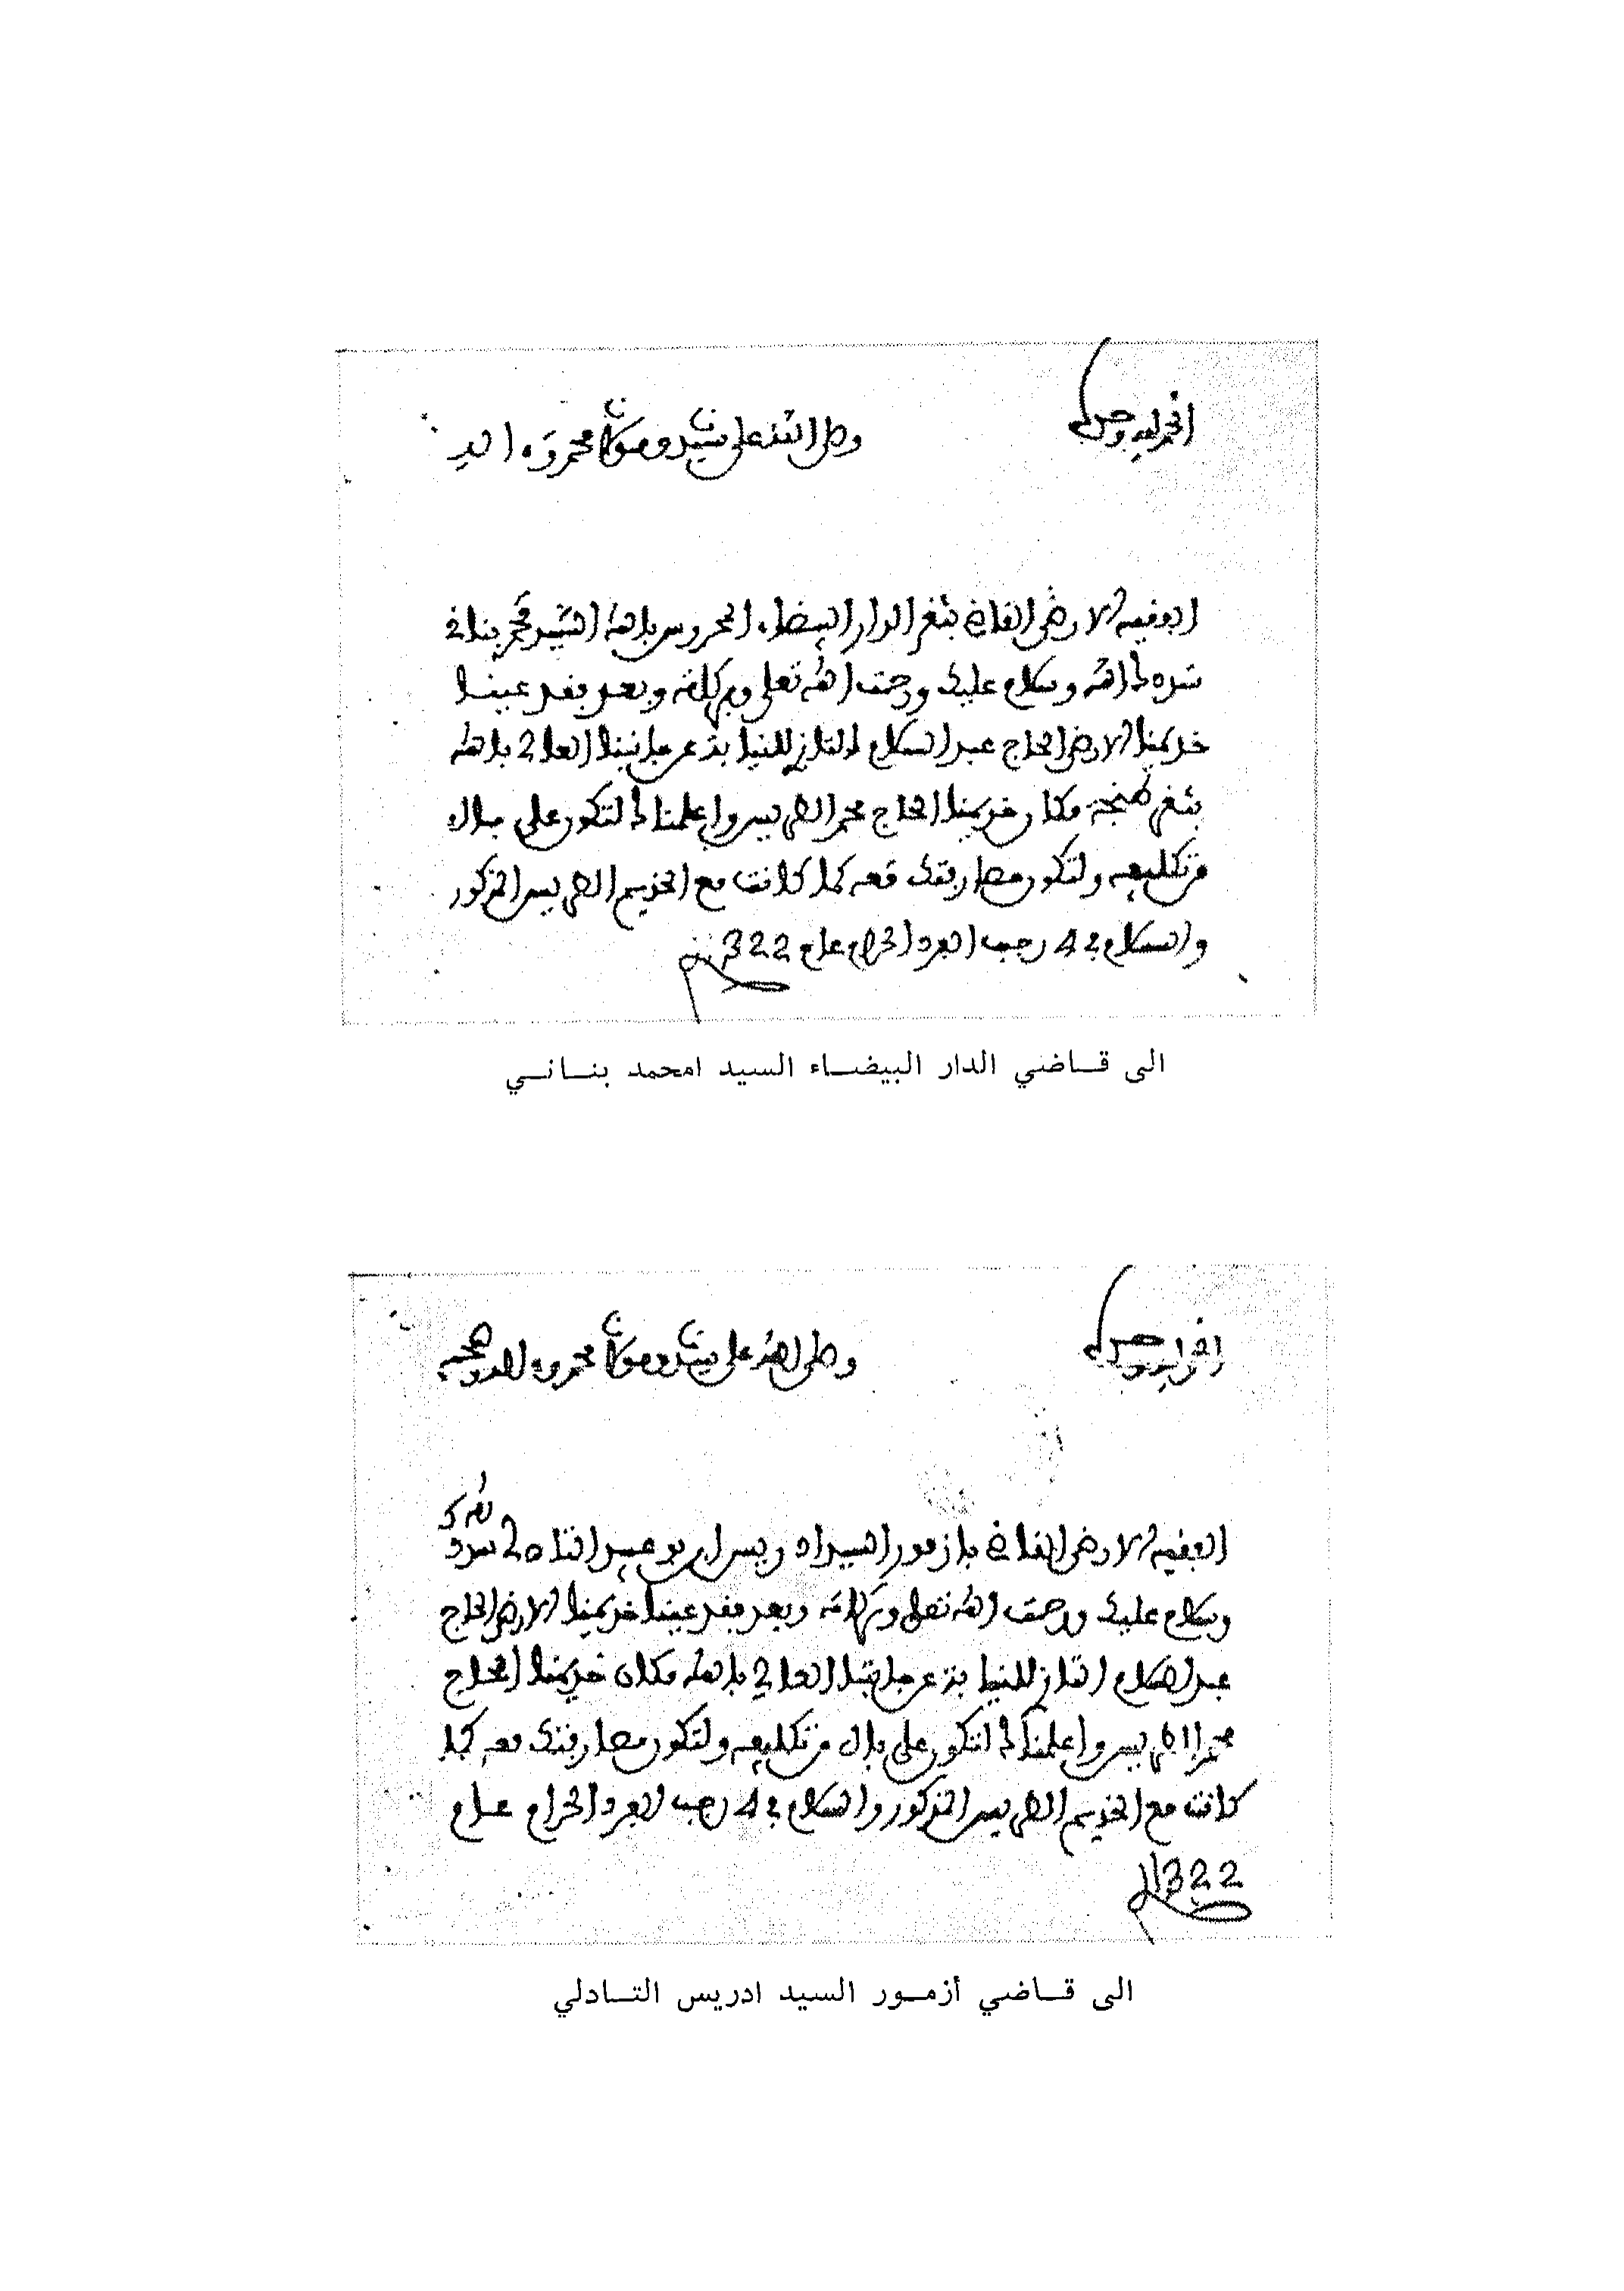 الحمد لله وحده
وصلى الله على سيدنا ومولانا محمد وءاله
الفقيه الارضى القاضي بثغر الدار البيضاء المحروس بالله السيد محمد بناني
سددك الله وسلام عليك ورحمت الله تعلى وبركاته وبعد فقد عينا
خديمنا الارضى الحاج عبد السلام التازي للنيابة عن جانبنا العالي بالله
بثغر طنجة مكان خديمنا الحاج محمد الطريس واعلمناك لتكون على بال
من تكليفه ولتكون مصارفتك معه كما كانت مع الخديم الطريس المذكور
والسلام في 4 رجب الفرد الحرام عام 1322
الى قـاضي الدار البيضـاء السيد امحمد بنـانـي
الحمد لله وحده
وصلى الله على سيدنا ومولانا محمد وءاله وصحبه
الفقيه الارضى القاضي بازمور السيد ادريس بن بوعبيد التادلي سددك الله
وسلام عليك ورحمت الله تعلى وبركاته وبعد فقد عينا خديمنا الارضى الحاج
عبد السلام التازي للنيابة عن جانبنا العالي بالله مكان خديمنا الحاج
محمد الطريس واعلمناك لتكون على بال من تكليفه ولتكون مصارفتك معه كما
كانت مع الخديم الطريس المذكور والسلام في 4 رجب الفرد الحرام عام
1322
الى قـاضي أزمـور السيد ادريس التـادلي